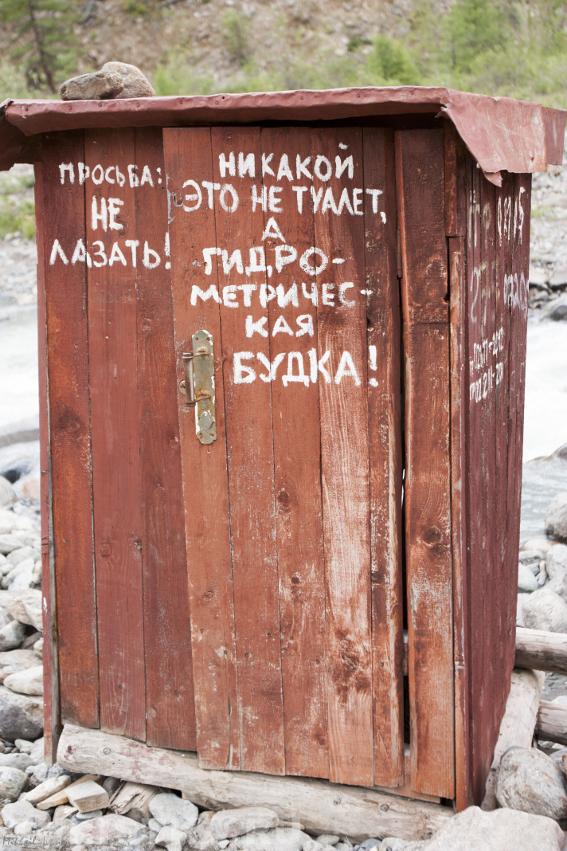 ПРОСЬБА:
НЕ
ЛАЗАТЬ!
НИКАКОЙ
ЭТО НЕ ТУАЛЕТ,
А
ГИДРО-
МЕТРИЧЕС-
КАЯ
БУДКА!